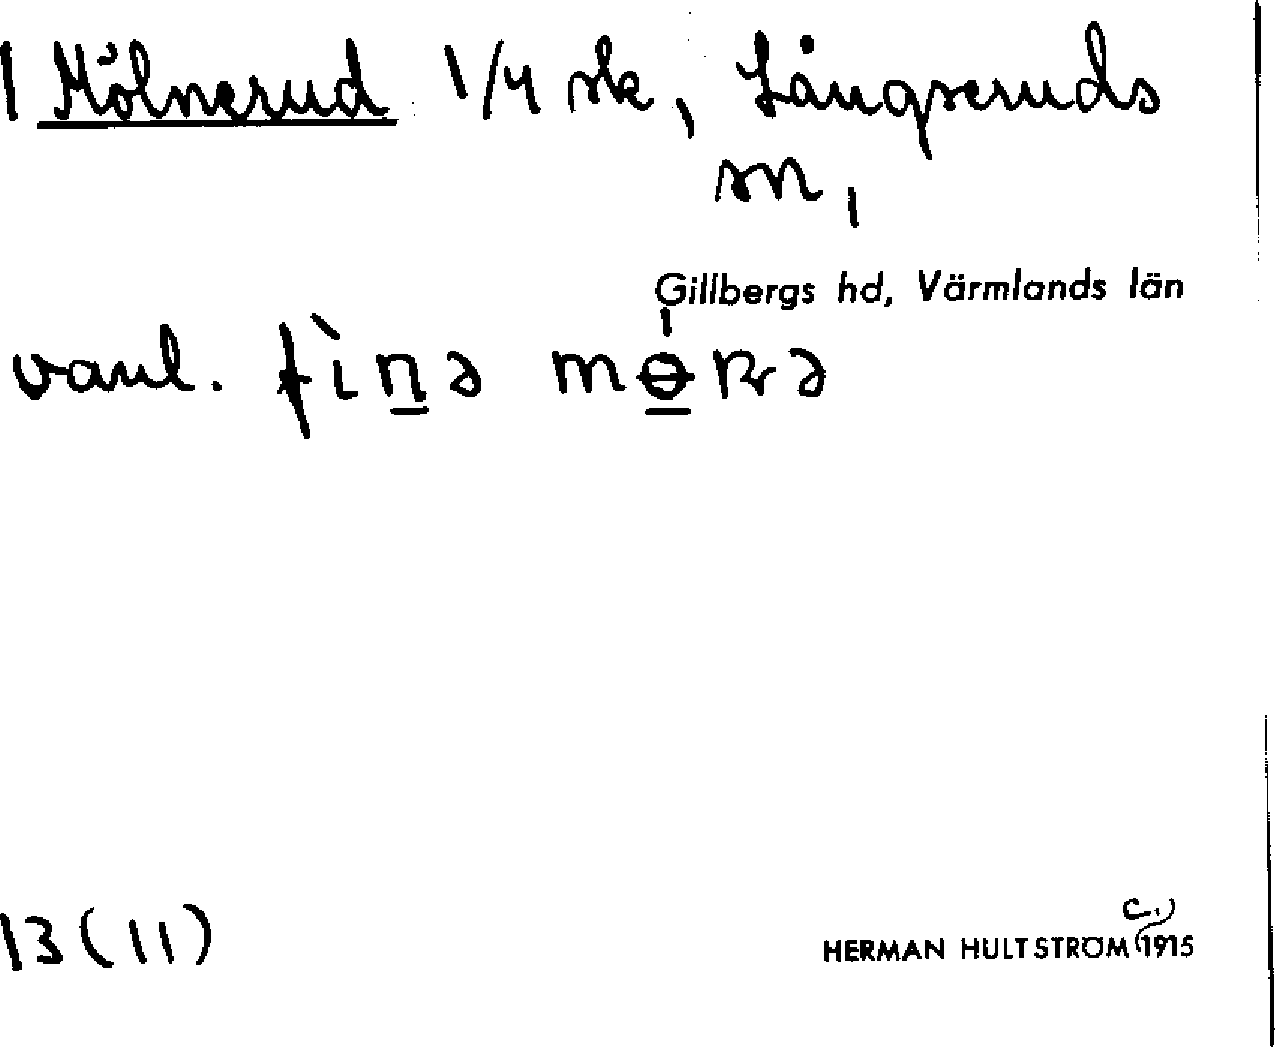 1 Mölnerud 1/4 sk, Långseruds
sn,
Gillbergs hd, Värmlands län
vanl. fìn̲ə
13(11)
HERMAN HULTSTRÖM (c.) 1915